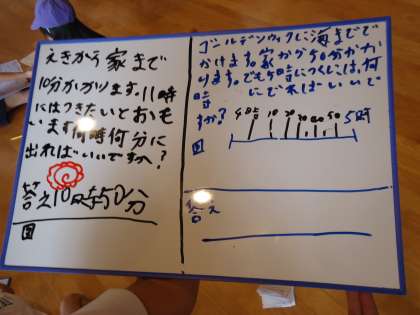 えきから家まで
10分かかります。11時
にはつきたいとおも
います何時何分に
出ればいいですか?
答え10時50分
図
ゴールデンウィクに海までで
かけます。家から50分かか
ります。でも5時につくには、何
時にでればいいで
すか?
4時 10 20 30 40 50 5時
図
答え